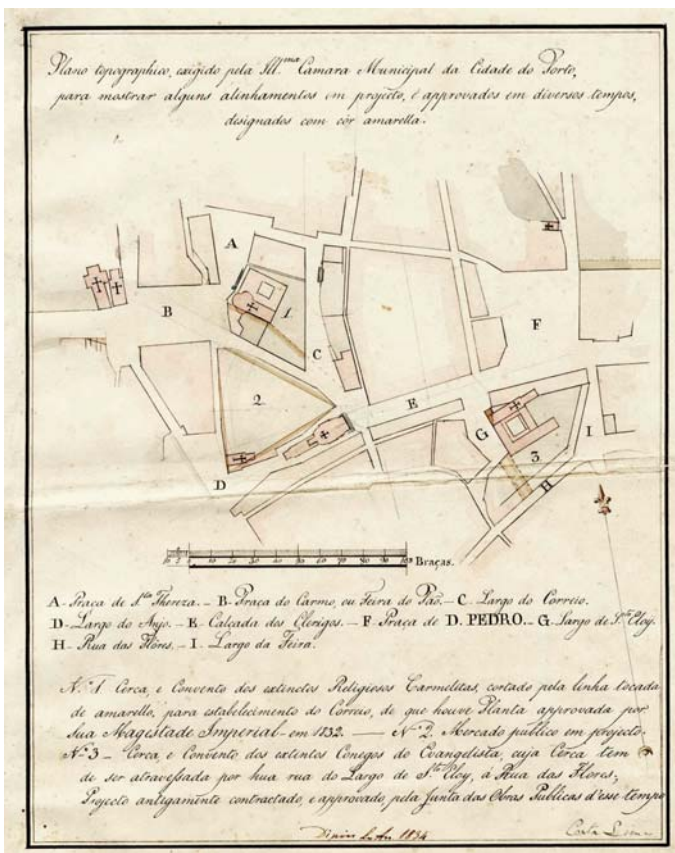 Plano topographico, exigido pela Ill.ma Camara Municipal da Cidade do Porto,
para mostrar alguns alinhamentos em projecto, e approvados em diversos tempos,
designados com côr amarella.
A
B
1
C
F
2
E
G
I
3
D
H
10 5 0 10 20 30 40 50 60 70 80 90 100 Braças.
A - Praça de S.ta Thereza. - B - Praça do Carmo, ou Feira do Pão. - C - Largo do Correio.
D - Largo do Anjo. - E - Calçada dos Clerigos. - F - Praça de D. PEDRO. - G - Largo de S.to Eloy.
H - Rua das Flôres. - I - Largo da Feira.
N.º 1 Cerca, e Convento dos extinctos Religiosos Carmelitas, cortado pela linha tocada
de amarello, para estabelecimento do Correio, de que houve Planta approvada por
Sua Magestade Imperial - em 1832. — N.º 2. Mercado publico em projecto.
N.º 3 - Cerca, e Convento dos extentos Conegos do Evangelista, cuja Cerca tem
de ser atravessada por hua rua do Largo de S.to Eloy, á Rua das Flores;
Projecto antigamente contractado, e approvado, pela Junta das Obras Publicas d'esse tempo
1834
Costa Lima